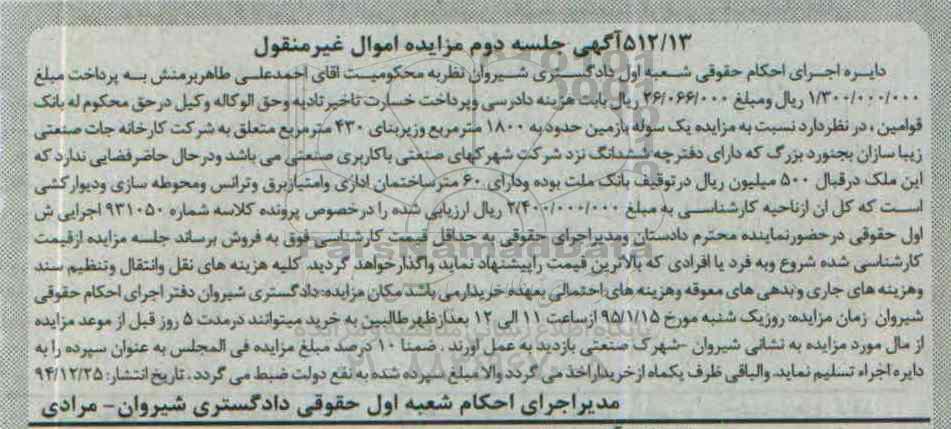 ۵۱۲/۱۳آگهی جلسه دوم مزایده اموال غیر منقول
دایره اجرای احکام حقوقی شعبه اول دادگستری شیروان نظر به محکومیت اقای احمدعلی طاهر برمنش به پرداخت مبلغ
۱/۳۰۰/۰۰۰/۰۰۰ ریال ومبلغ ۲۶/۰۶۶/۰۰۰ ریال بابت هزینه دادرسی وپرداخت خسارت تاخیر تادیه وحق الوکاله وکیل درحق محکوم له بانک
قوامین ، در نظر دارد نسبت به مزایده یک سوله بازمین حدود به ۱۸۰۰ مترمربع وزیربنای ۴۳۰ مترمربع متعلق به شرکت کارخانه جات صنعتی
زیبا سازان بجنورد بزرگ که دارای دفترچه ششدانگ نزد شرکت شهرکهای صنعتی باکاربری صنعتی می باشد ودرحال حاضر فضایی ندارد که
این ملک درقبال ۵۰۰ میلیون ریال درتوقیف بانک ملت بوده ودارای ۶۰ مترساختمان اداری وامتیازبرق وترانس ومحوطه سازی ودیوارکشی
است که کل ان ازناحیه کارشناسی به مبلغ ۲/۴۰۰/۰۰۰/۰۰۰ ریال ارزیابی شده را درخصوص پرونده کلاسه شماره ۹۳۱۰۵۰ اجرایی ش
اول حقوقی درحضورنماینده محترم دادستان ومدیراجرای حقوقی به حداقل قیمت کارشناسی فوق به فروش برساند جلسه مزایده ازقیمت
کارشناسی شده شروع وبه فرد یا افرادی که بالاترین قیمت راپیشنهاد نماید واگذارخواهد گردید. کلیه هزینه های نقل وانتقال وتنظیم سند
وهزینه های جاری وبدهی های معوقه وهزینه های احتمالی بعهده خریدارمی باشد مکان مزایده: دادگستری شیروان دفتر اجرای احکام حقوقی
شیروان زمان مزایده: روزیک شنبه مورخ ۹۵/۱/۱۵ ازساعت ۱۱ الی ۱۲ بعدازظهر طالبین به خرید میتوانند درمدت ۵ روز قبل از موعد مزایده
از مال مورد مزایده به نشانی شیروان -شهرک صنعتی بازدید به عمل اورند . ضمنا ۱۰ درصد مبلغ مزایده فی المجلس به عنوان سپرده را به
دایره اجراء تسلیم نماید. والباقی ظرف یکماه ازخریداراخذ می گردد والا مبلغ سپرده شده به نفع دولت ضبط می گردد . تاریخ انتشار: ۹۴/۱۲/۲۵
مدیراجرای احکام شعبه اول حقوقی دادگستری شیروان- مرادی